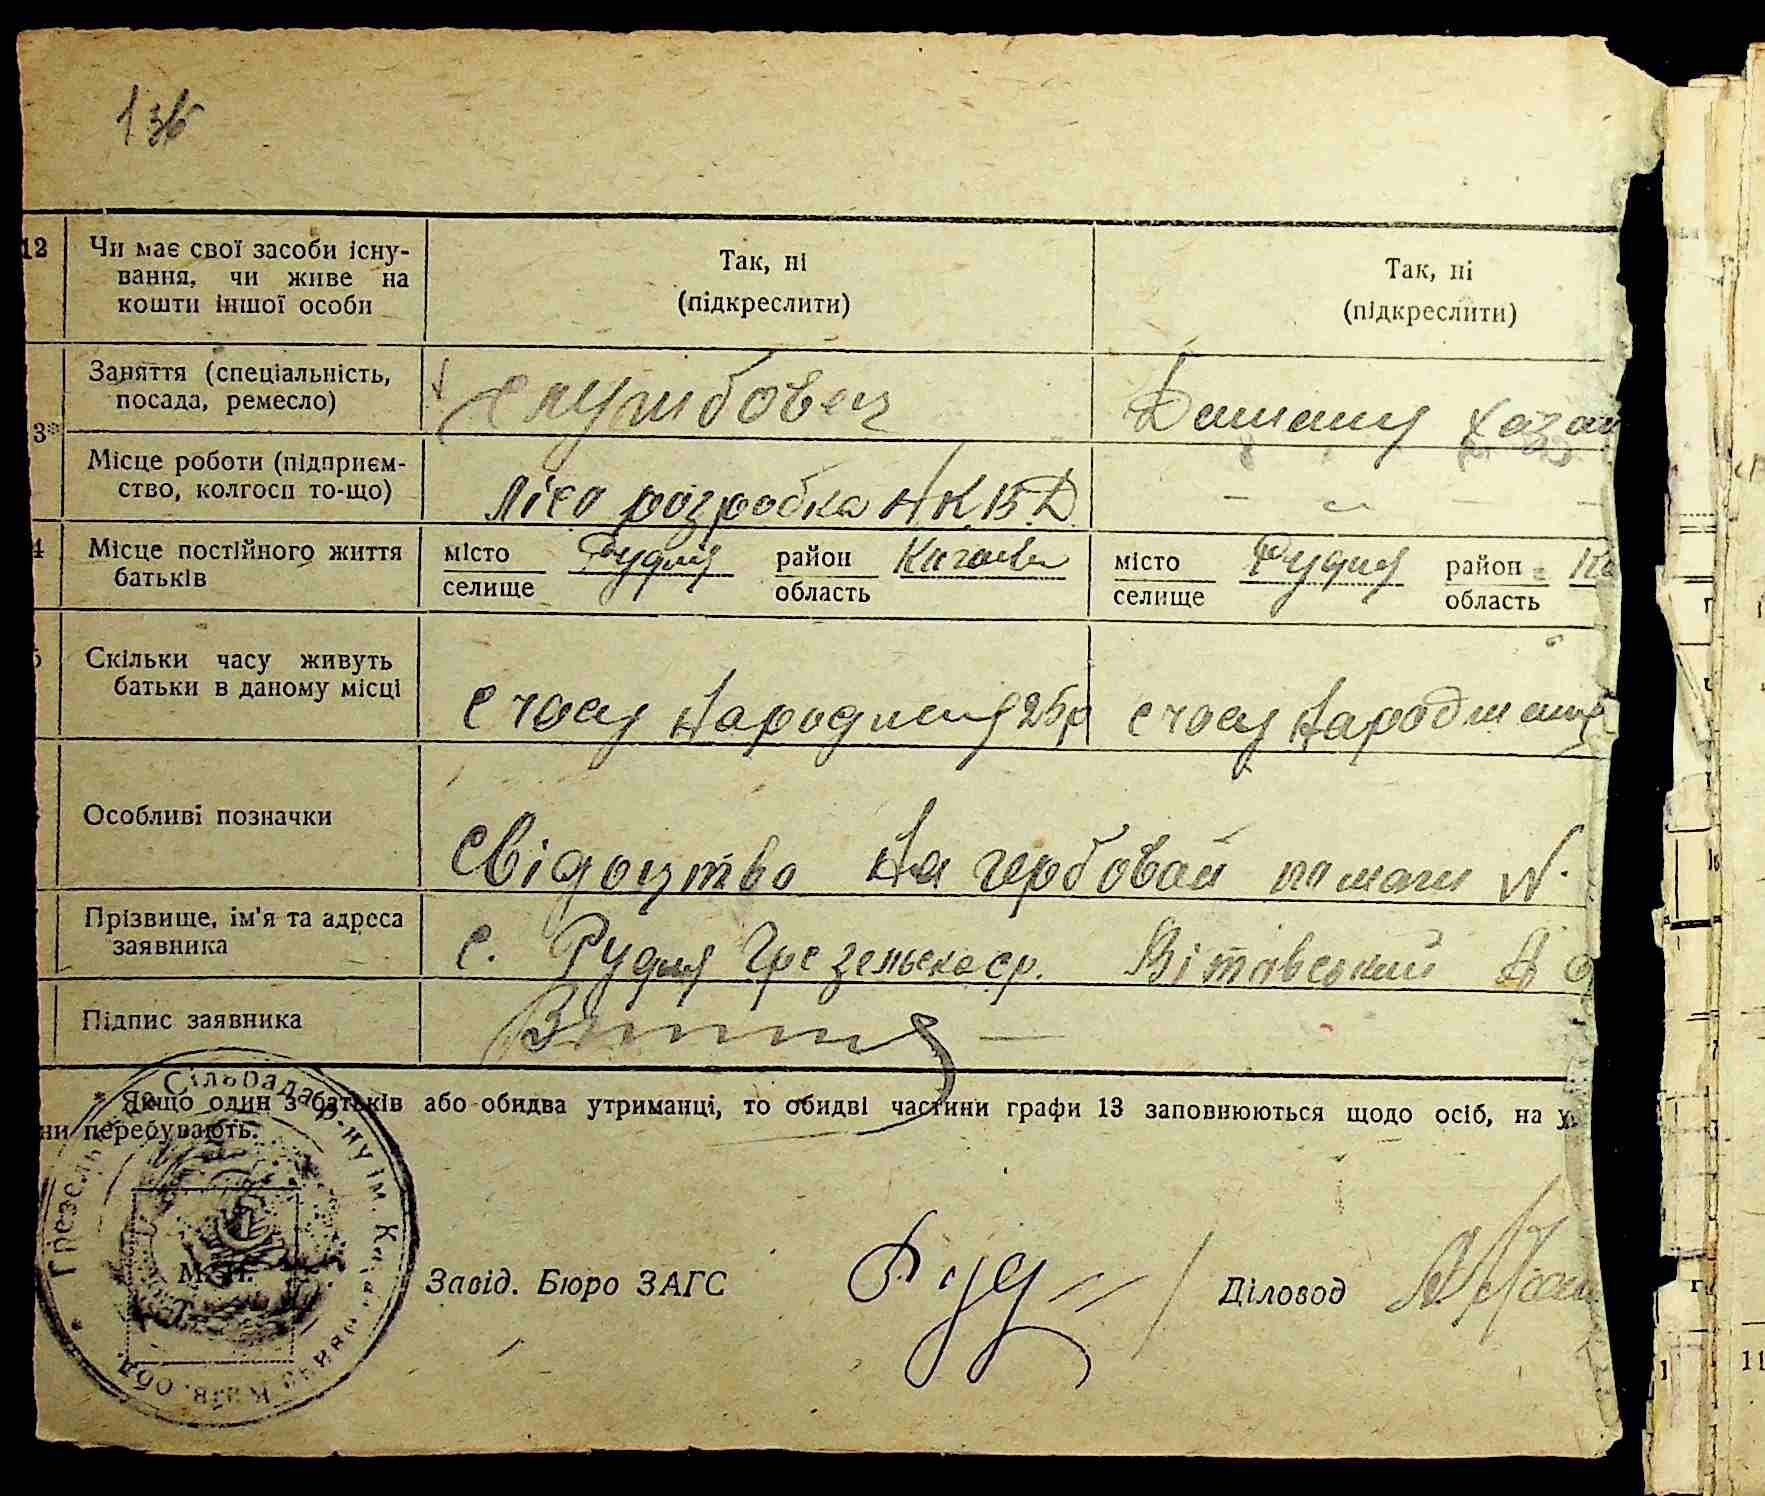 136
12 Чи має свої засоби існу-
вання, чи живе на
кошти іншої особи
Так, ні
(підкреслити)
Так, ні
(підкреслити)
3* Заняття (спеціальність,
посада, ремесло)
службовец
Домашня хазяй
Місце роботи (підприєм-
ство, колгосп то-що)
Лісо розробка НКВД
4 Місце постійного життя
батьків
місто
селище
Рудня
район
область
Кагонов
місто
селище
Рудня
район
область
Ка
5 Скільки часу живуть
батьки в даному місці
с часу народженя 25р
с часу народження
Особливі позначки
Свідоцтво на гербовай N.
Прізвище, ім'я та адреса
заявника
с. Рудня Грезельская ср. Вітовський
Підпис заявника
* Якщо один з батьків або обидва утриманці, то обидві частини графи 13 заповнюються щодо осіб, на у
ни перебувають.
Грезельс Сільрада р-ну ім. Кагановича Київ. обл.
М. П.
Завід. Бюро ЗАГС
Руд
Діловод